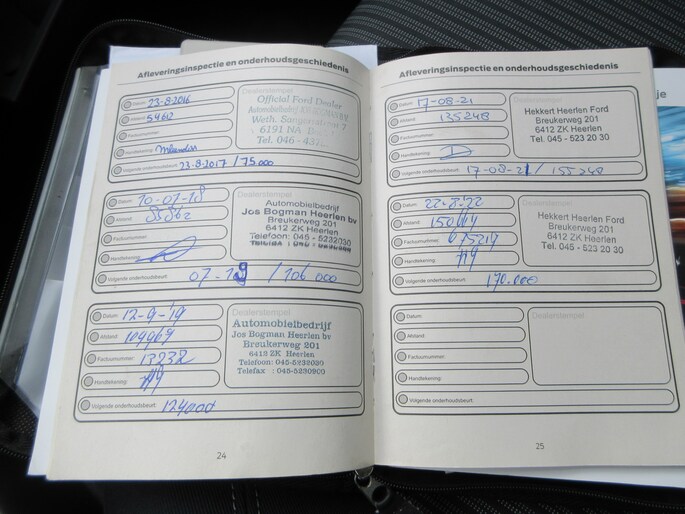 Afleveringsinspectie en onderhoudsgeschiedenis
Datum: 23-8-2016
Afstand: 54612
Factuurnummer:
Handtekening:
Volgende onderhoudsbeurt: 23-8-2017 / 75.000
Dealerstempel
Official Ford Dealer
Automobielbedrijf
Weth. Sangersstraat 7
6191 NA
Tel. 046 - 43
Datum: 10-07-18
Afstand:
Factuurnummer:
Handtekening:
Volgende onderhoudsbeurt: 07-19 / 106 000
Dealerstempel
Automobielbedrijf
Jos Bogman Heerlen bv
Breukerweg 201
6412 ZK Heerlen
Telefoon: 045 - 5232030
Datum: 12-9-19
Afstand: 104969
Factuurnummer: 13232
Handtekening:
Volgende onderhoudsbeurt: 124000
Dealerstempel
Automobielbedrijf
Jos Bogman Heerlen bv
Breukerweg 201
6412 ZK Heerlen
Telefoon: 045-5232030
Telefax : 045-5230900
24
Afleveringsinspectie en onderhoudsgeschiedenis
Datum: 17-08-21
Afstand: 135248
Factuurnummer:
Handtekening:
Volgende onderhoudsbeurt: 17-08-21 / 155248
Dealerstempel
Hekkert Heerlen Ford
Breukerweg 201
6412 ZK Heerlen
Tel. 045 - 523 20 30
Datum: 22-8-22
Afstand:
Factuurnummer:
Handtekening:
Volgende onderhoudsbeurt: 170.000
Dealerstempel
Hekkert Heerlen Ford
Breukerweg 201
6412 ZK Heerlen
Tel. 045 - 523 20 30
Datum:
Afstand:
Factuurnummer:
Handtekening:
Volgende onderhoudsbeurt:
Dealerstempel
25
je